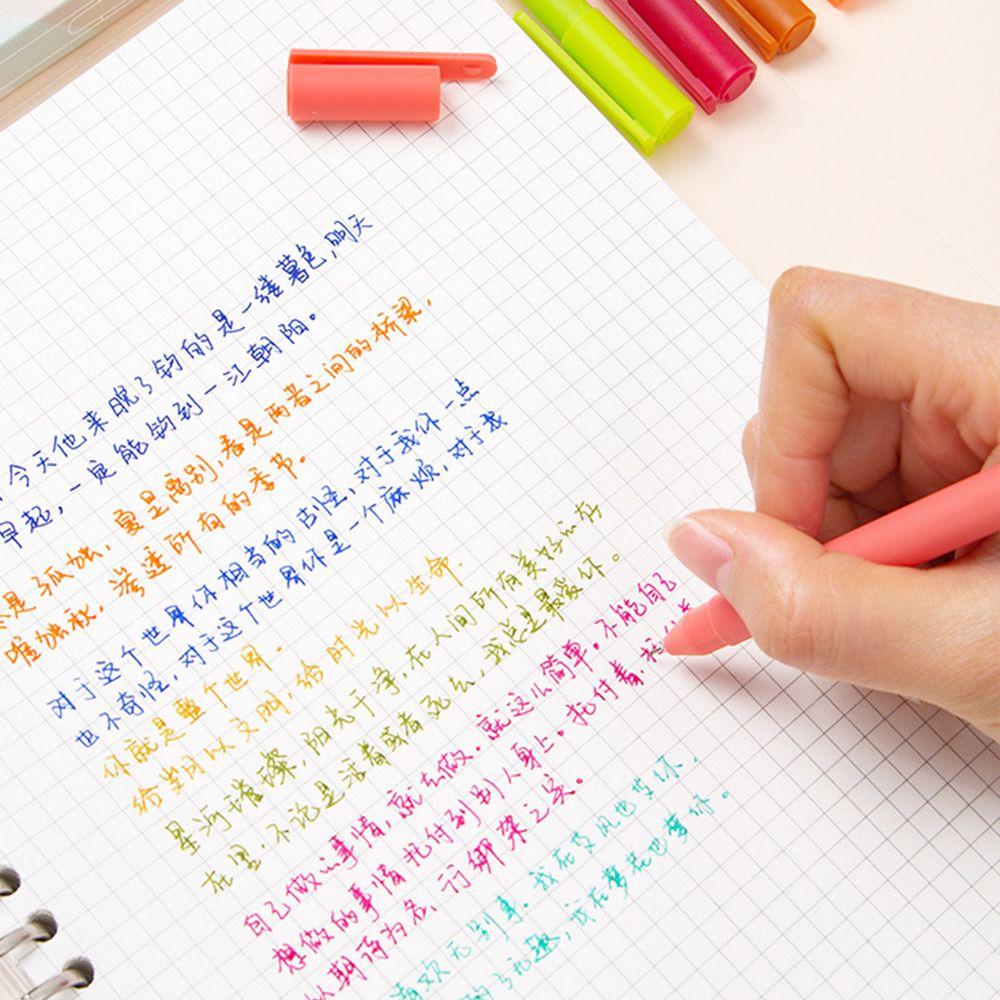 今天他来晚了钓的是一缕暮色,明天
早起,一定能钓到一江朝阳。
是孤独,夏是离别,春是两者之间的桥梁,
唯独秋,渗透所有的季节。
对于这个世界你相当的古怪,对于我你一点
也不奇怪,对于这个世界你是一个麻烦,对于我
你就是整个世界.
给岁月以文明,给时光以生命.
星河璀璨,阳光干净,在人间所有美好的存
在里,不论是活着或者死去,我总是最爱你。
自己做的事情,就去做.就这么简单.不能自己
想做的事情托付到别人身上.托付着,
以期待为名、行绑架之实。
喜欢无别事.我在及风也梦你,
的了无趣,我在梦花也梦你。